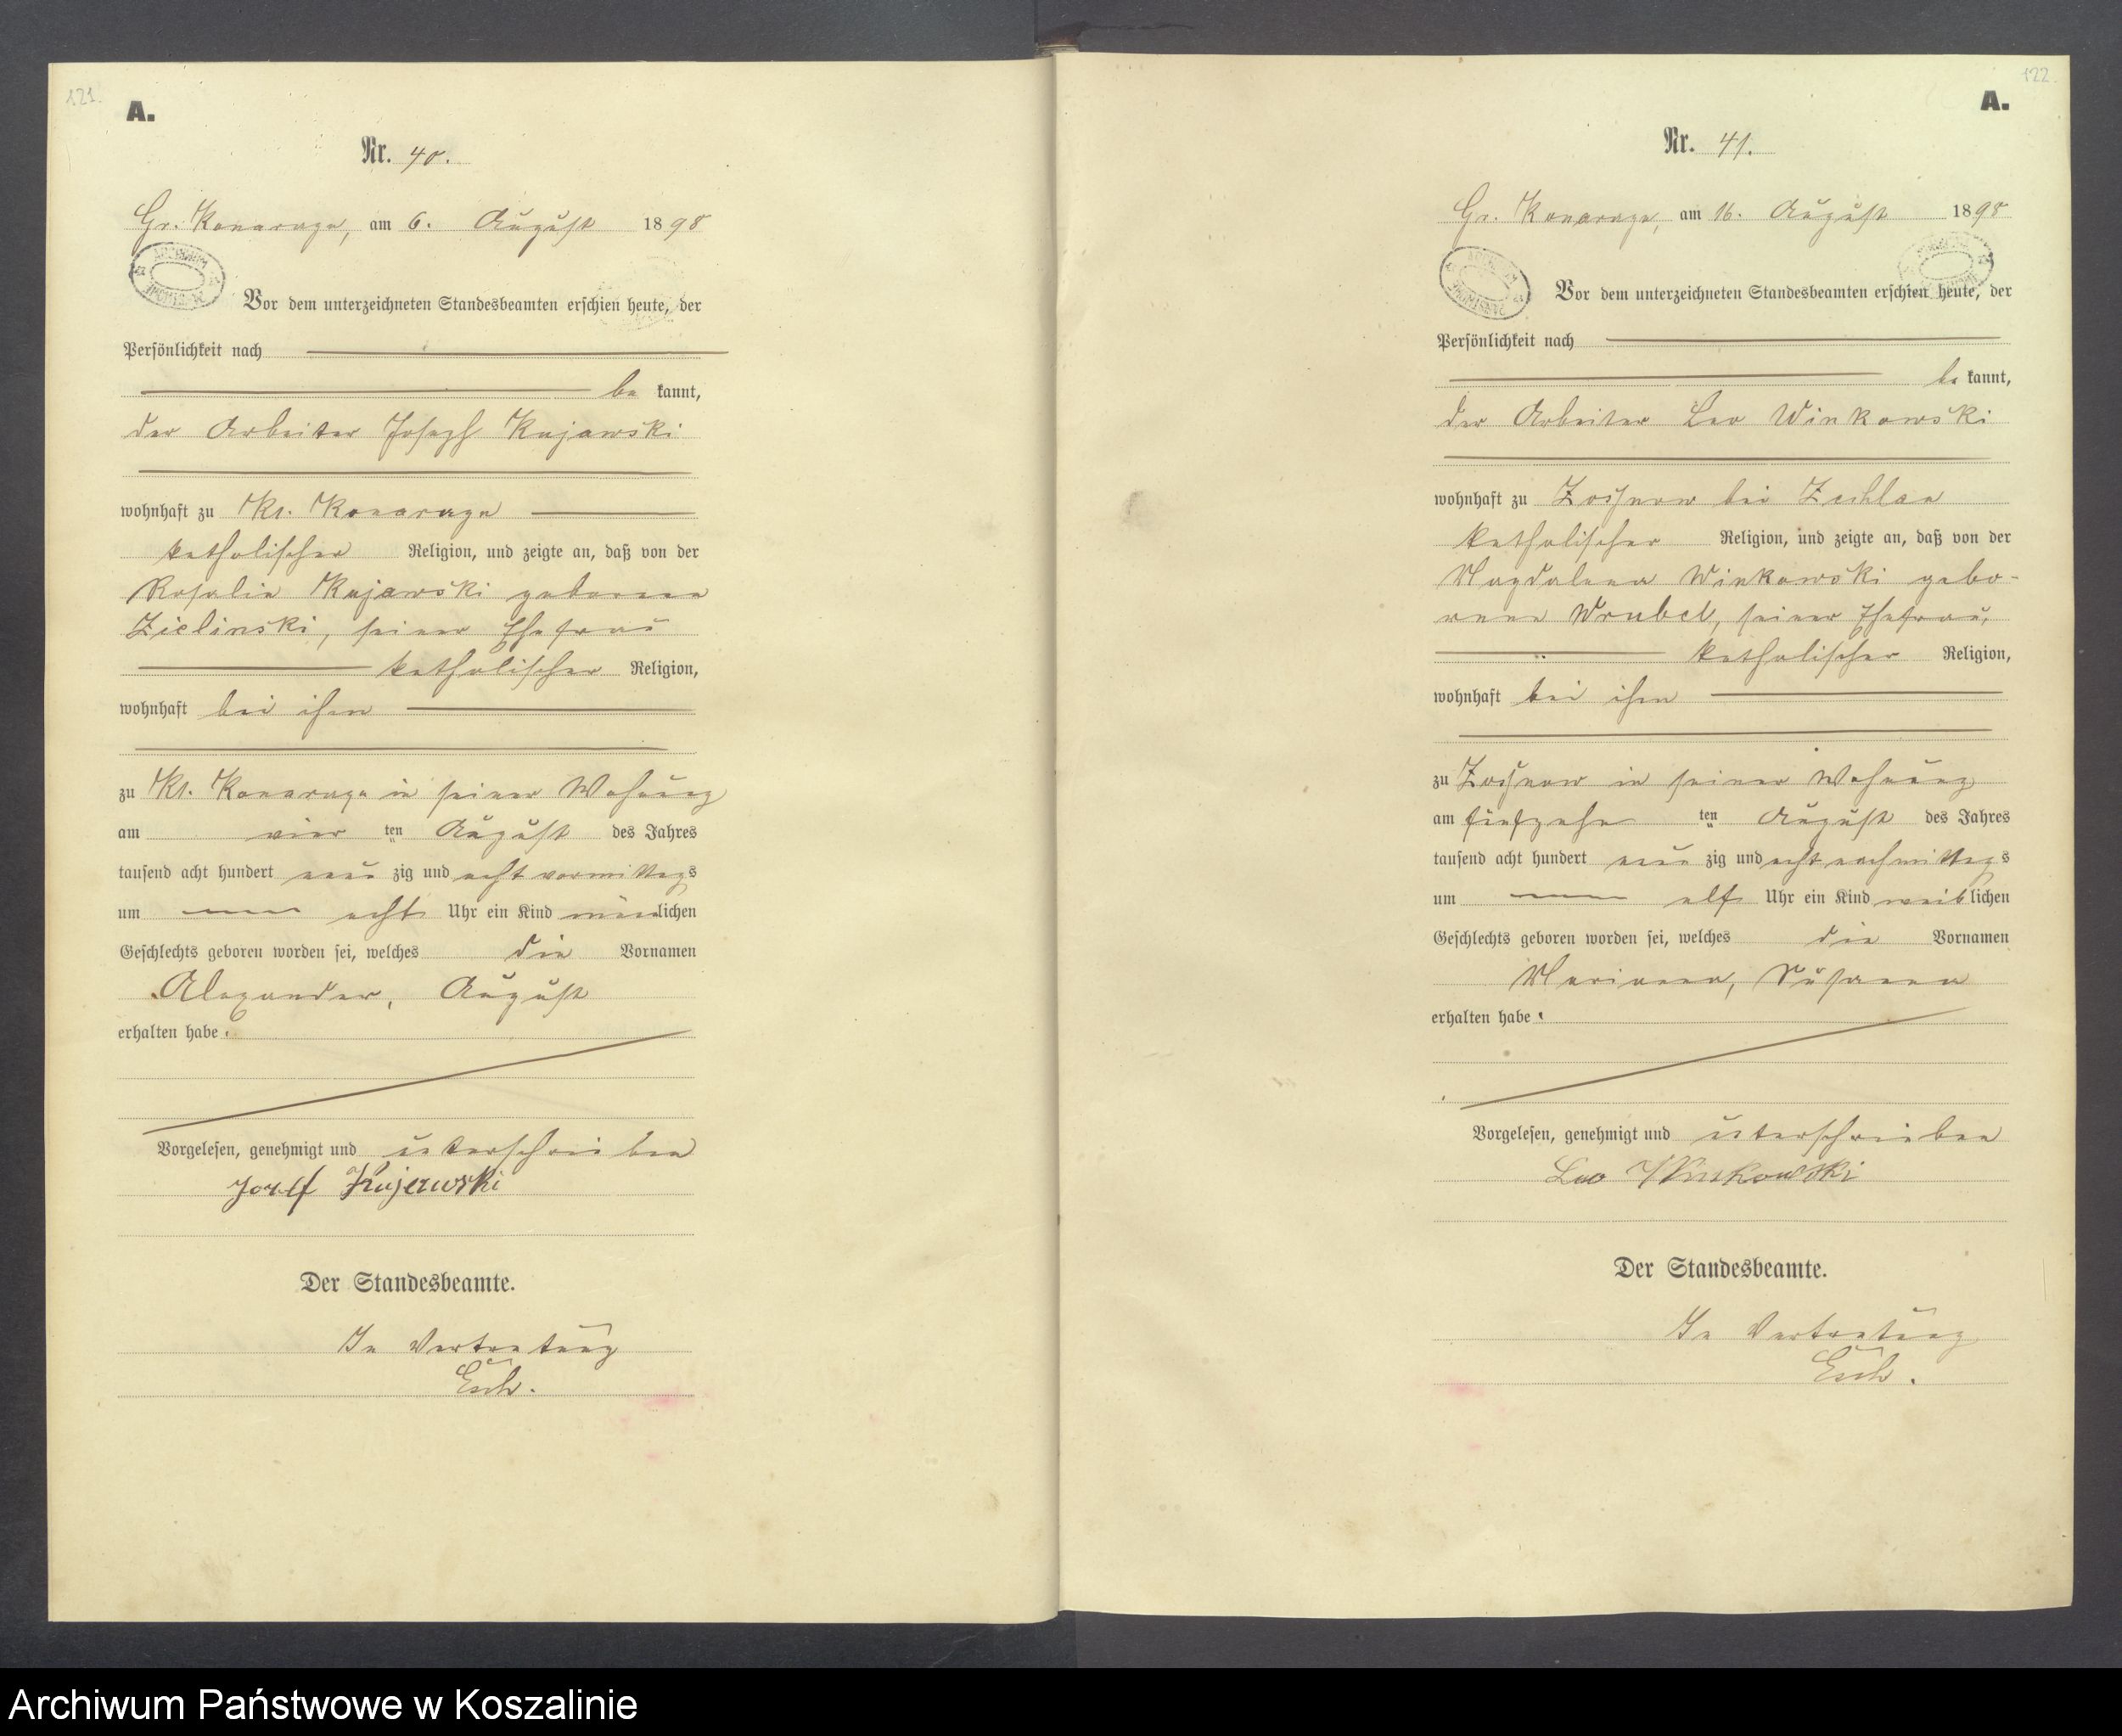 121.
A.
Nr. 40.
Gr. Konarczyn, am 6. August 1898
Vor dem unterzeichneten Standesbeamten erschien heute, der
Persönlichkeit nach
be kannt,
der Arbeiter Joseph Kujawski
wohnhaft zu Kl. Konarczyn
katholischer Religion, und zeigte an, daß von der
Rosalie Kujawski geborenen
Zielinski, seiner Ehefrau
katholischer Religion,
wohnhaft bei ihm
zu Kl. Konarczyn in seiner Wohnung
am vier ten August des Jahres
tausend acht hundert neun zig und acht vormittags
um acht Uhr ein Kind männlichen
Geschlechts geboren worden sei, welches die Vornamen
Alexander, August
erhalten habe.
Vorgelesen, genehmigt und unterschrieben
Josef Kujewski
Der Standesbeamte.
In Vertretung
122.
A.
Nr. 41.
Gr. Konarczyn, am 16. August 1898
Vor dem unterzeichneten Standesbeamten erschien heute, der
Persönlichkeit nach
be kannt,
der Arbeiter Leo Winkowski
wohnhaft zu Zossnow bei Zechlau
katholischer Religion, und zeigte an, daß von der
Magdalena Winkowski gebo-
renen Wrubel, seiner Ehefrau,
katholischer Religion,
wohnhaft bei ihm
zu Zossnow in seiner Wohnung
am fünfzehn ten August des Jahres
tausend acht hundert neun zig und acht nachmittags
um elf Uhr ein Kind weiblichen
Geschlechts geboren worden sei, welches die Vornamen
Marianna, Susanna
erhalten habe.
Vorgelesen, genehmigt und unterschrieben
Leo Winkowski
Der Standesbeamte.
In Vertretung
Archiwum Państwowe w Koszalinie